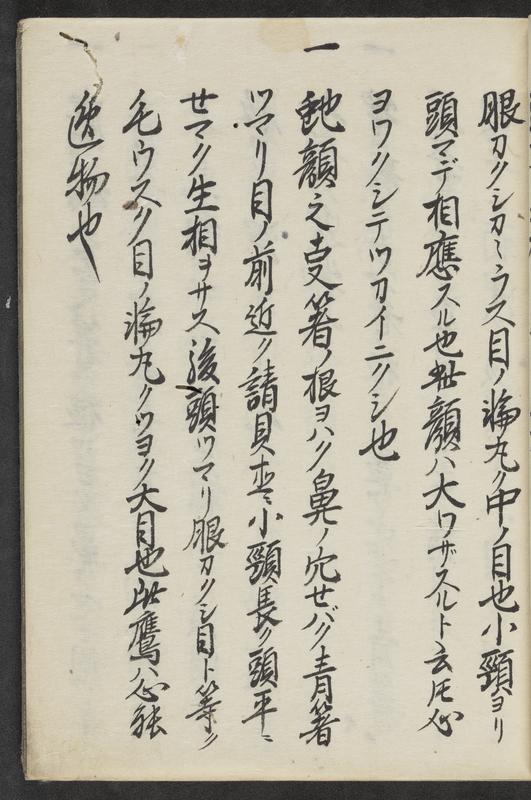 眼カクシカミウス目ノ輪丸ク中ノ目也小頸ヨリ
頭マデ相應スル也此顔ハ大ワザスルト云トモ心
ヨワクシテツカイニクシ也
一
虵顔之支箸ノ根ヨハク鼻ノ穴せバク青箸
ツマリ目ノ前近ク請貝
小頸長ク頭平ミ
せマク生相ヲサス後頭ツマリ眼カクシ目ト等シ
毛ウスク目ノ輪丸クツヨク大目也此鷹ハ心強
逸物也